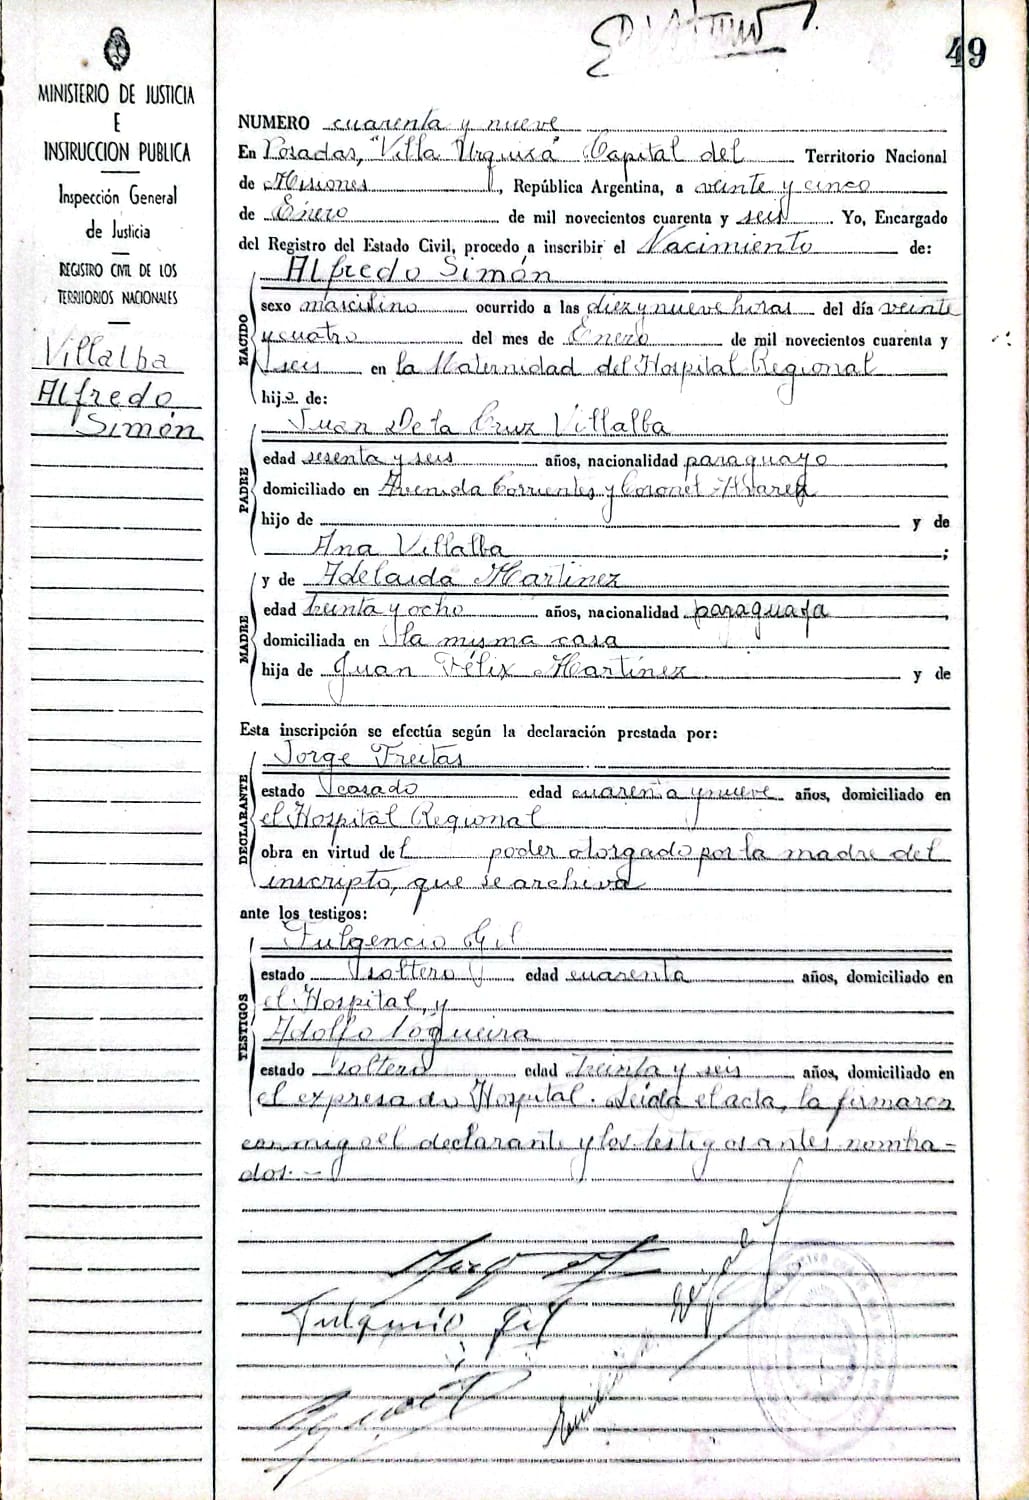 49
MINISTERIO DE JUSTICIA
E
INSTRUCCION PUBLICA
Inspección General
de Justicia
REGISTRO CIVIL DE LOS
TERRITORIOS NACIONALES
Villalba
Alfredo
Simón
NUMERO cuarenta y nueve
En Posadas, "Villa Urquiza" Capital del Territorio Nacional
de Misiones, República Argentina, a veinte y cinco
de Enero de mil novecientos cuarenta y seis. Yo, Encargado
del Registro del Estado Civil, procedo a inscribir el Nacimiento de:
NACIDO
Alfredo Simón
sexo masculino ocurrido a las diez y nueve horas del día veinte
y cuatro del mes de Enero de mil novecientos cuarenta y
seis en la Maternidad del Hospital Regional
hijo de:
PADRE
Juan De la Cruz Villalba
edad sesenta y seis años, nacionalidad paraguayo,
domiciliado en Avenida Corrientes y Coronel Alvarez
hijo de y de
Ana Villalba;
MADRE
y de Adelaida Martinez
edad treinta y ocho años, nacionalidad paraguaya,
domiciliada en la misma casa
hija de Juan Félix Martínez y de
Esta inscripción se efectúa según la declaración prestada por:
DECLARANTE
Jorge Freitas
estado casado edad cuarenta y nueve años, domiciliado en
el Hospital Regional
obra en virtud del poder otorgado por la madre del
inscripto, que se archiva
ante los testigos:
TESTIGOS
Fulgencio Gil
estado soltero edad cuarenta años, domiciliado en
el Hospital, y
Adolfo Nogueira
estado soltero edad treinta y seis años, domiciliado en
el expresado Hospital. Leída el acta, la firmaron
conmigo el declarante y los testigos antes nombra-
dos.—
Fulgencio Gil